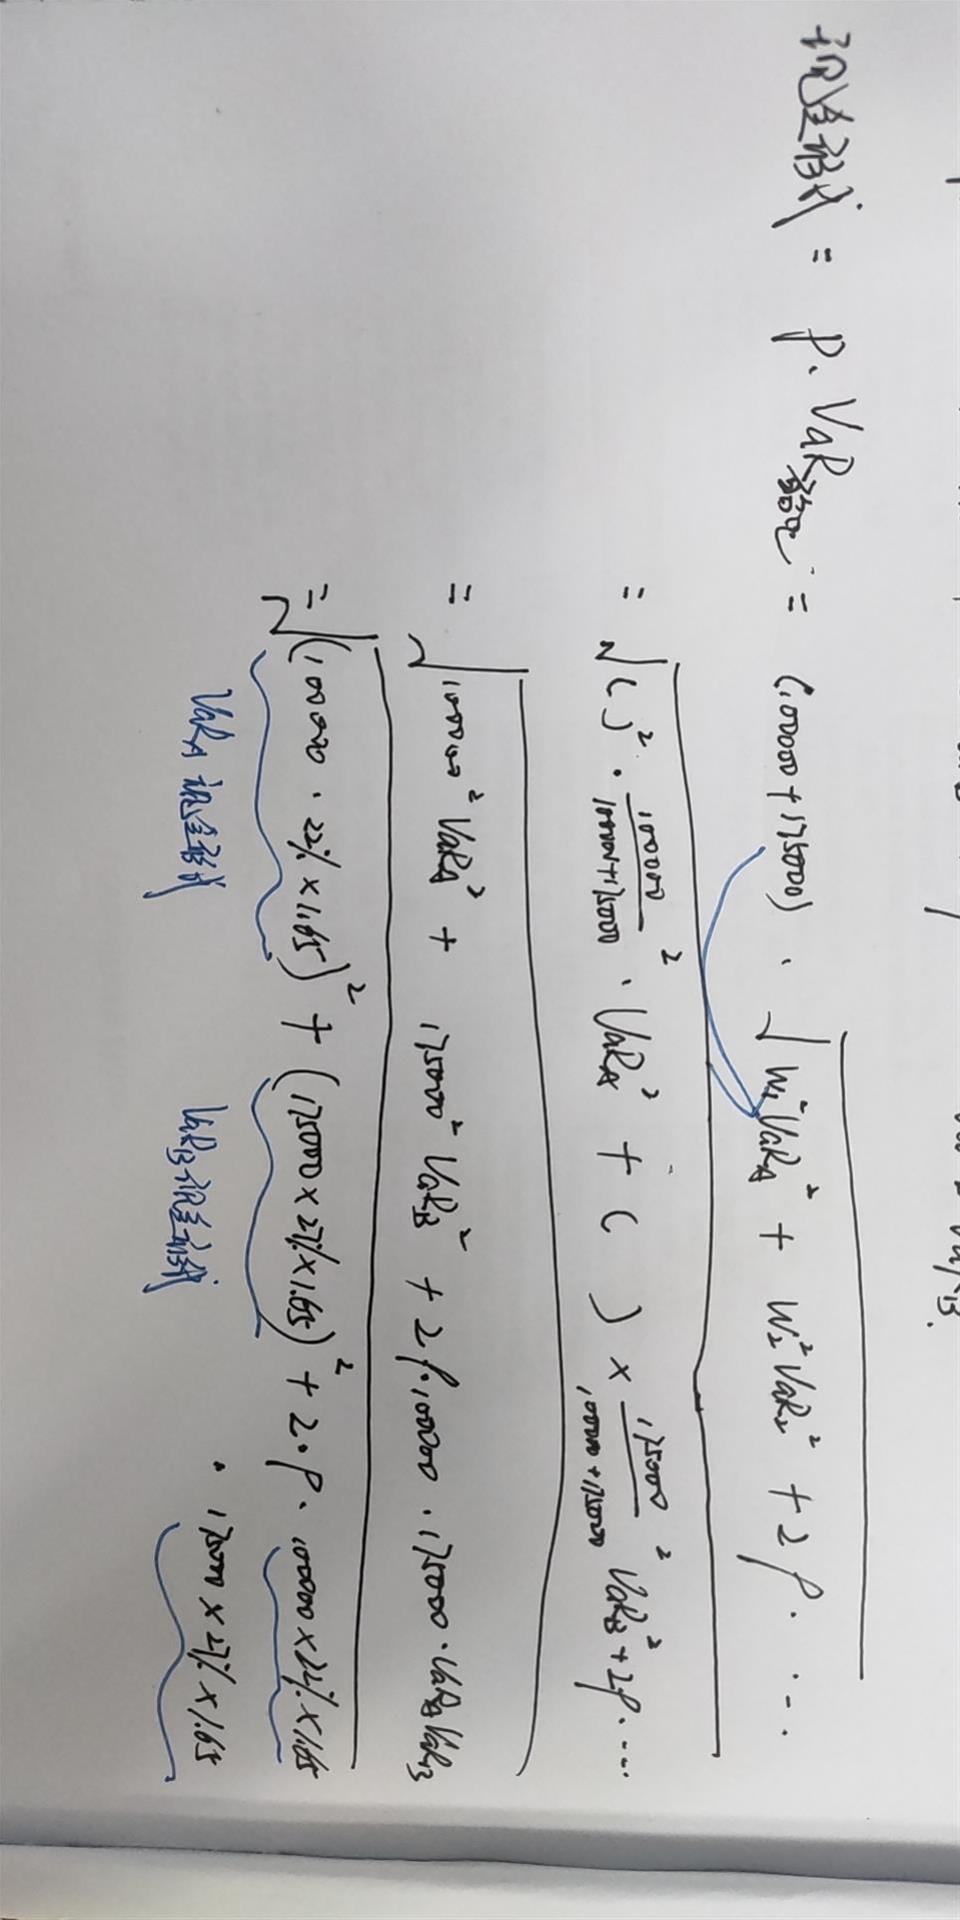 现金形式 = P. VaR组合 = (100000+175000) · √W₁²VaR_A² + W₂²VaR₂² + 2ρ. ...
= √( )² · 100000/100000+175000 ² · VaR_A² + ( ) × 175000/100000+175000 ² VaR_B² + 2ρ. ...
= √100000² VaR_A² + 175000² VaR_B² + 2ρ. 100000 · 175000 · VaR_A VaR_B
= √(100000 · 22% × 1.65)² + (175000 × 27% × 1.65)² + 2·ρ. 100000 × 22% × 1.65
· 175000 × 27% × 1.65
VaR_A 现金形式 VaR_B 现金形式